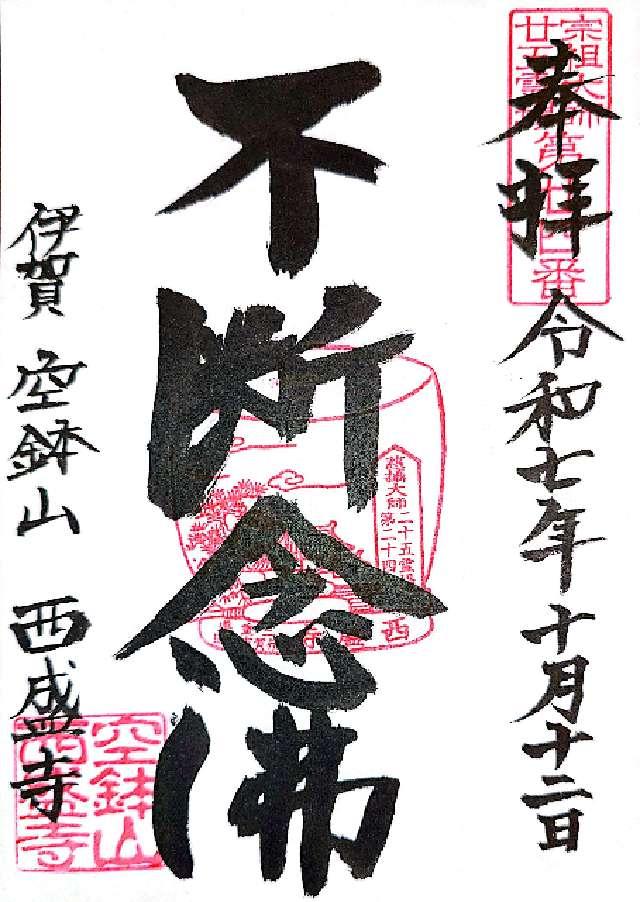 奉拝
令和七年十月十二日
宗祖大師
廿五霊場第廿四番
不断念佛
慈攝大師二十五霊場
第二十四
西盛寺
伊賀 空鉢山 西盛寺
空鉢山
西盛寺